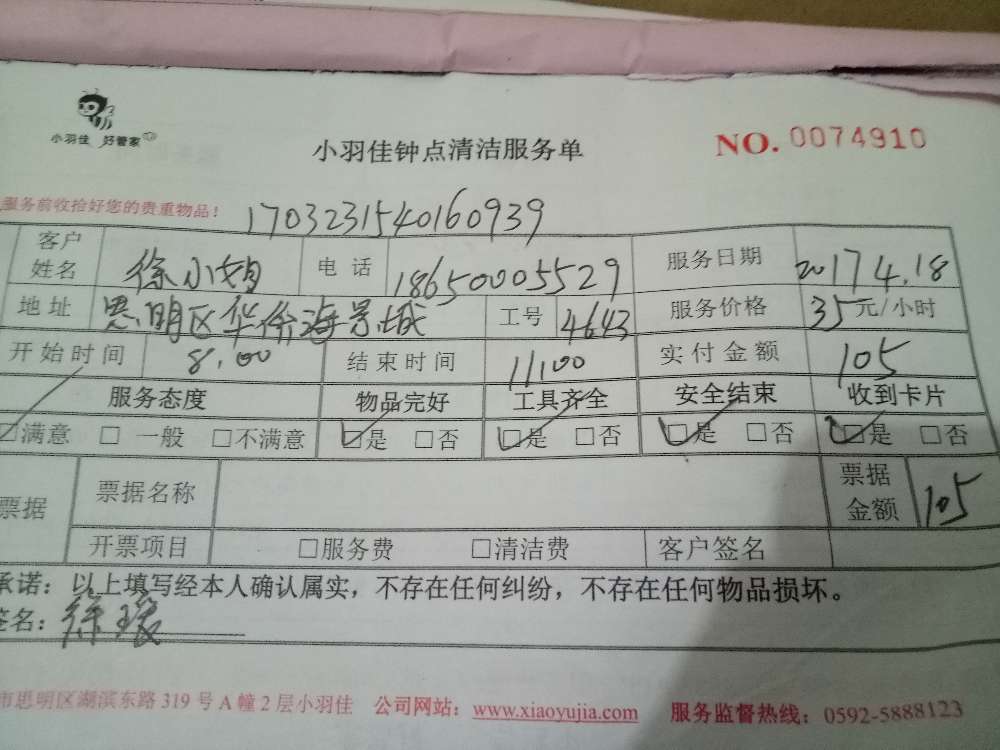 小羽佳 好管家
小羽佳钟点清洁服务单 NO. 0074910
服务前收拾好您的贵重物品! 1703231540160939
客户姓名 徐小姐 电话 18650005529 服务日期 2017 4.18
地址 思明区华侨海景城 工号 4643 服务价格 35元/小时
开始时间 8.00 结束时间 11.00 实付金额 105
服务态度 物品完好 工具齐全 安全结束 收到卡片
☑满意 □ 一般 □不满意 ☑是 □否 ☑是 □否 ☑是 □否 ☑是 □否
票据 票据名称 票据金额 105
开票项目 □服务费 □清洁费 客户签名
承诺：以上填写经本人确认属实，不存在任何纠纷，不存在任何物品损坏。
签名：徐
市思明区湖滨东路 319 号 A 幢 2 层小羽佳 公司网站：www.xiaoyujia.com 服务监督热线：0592-5888123